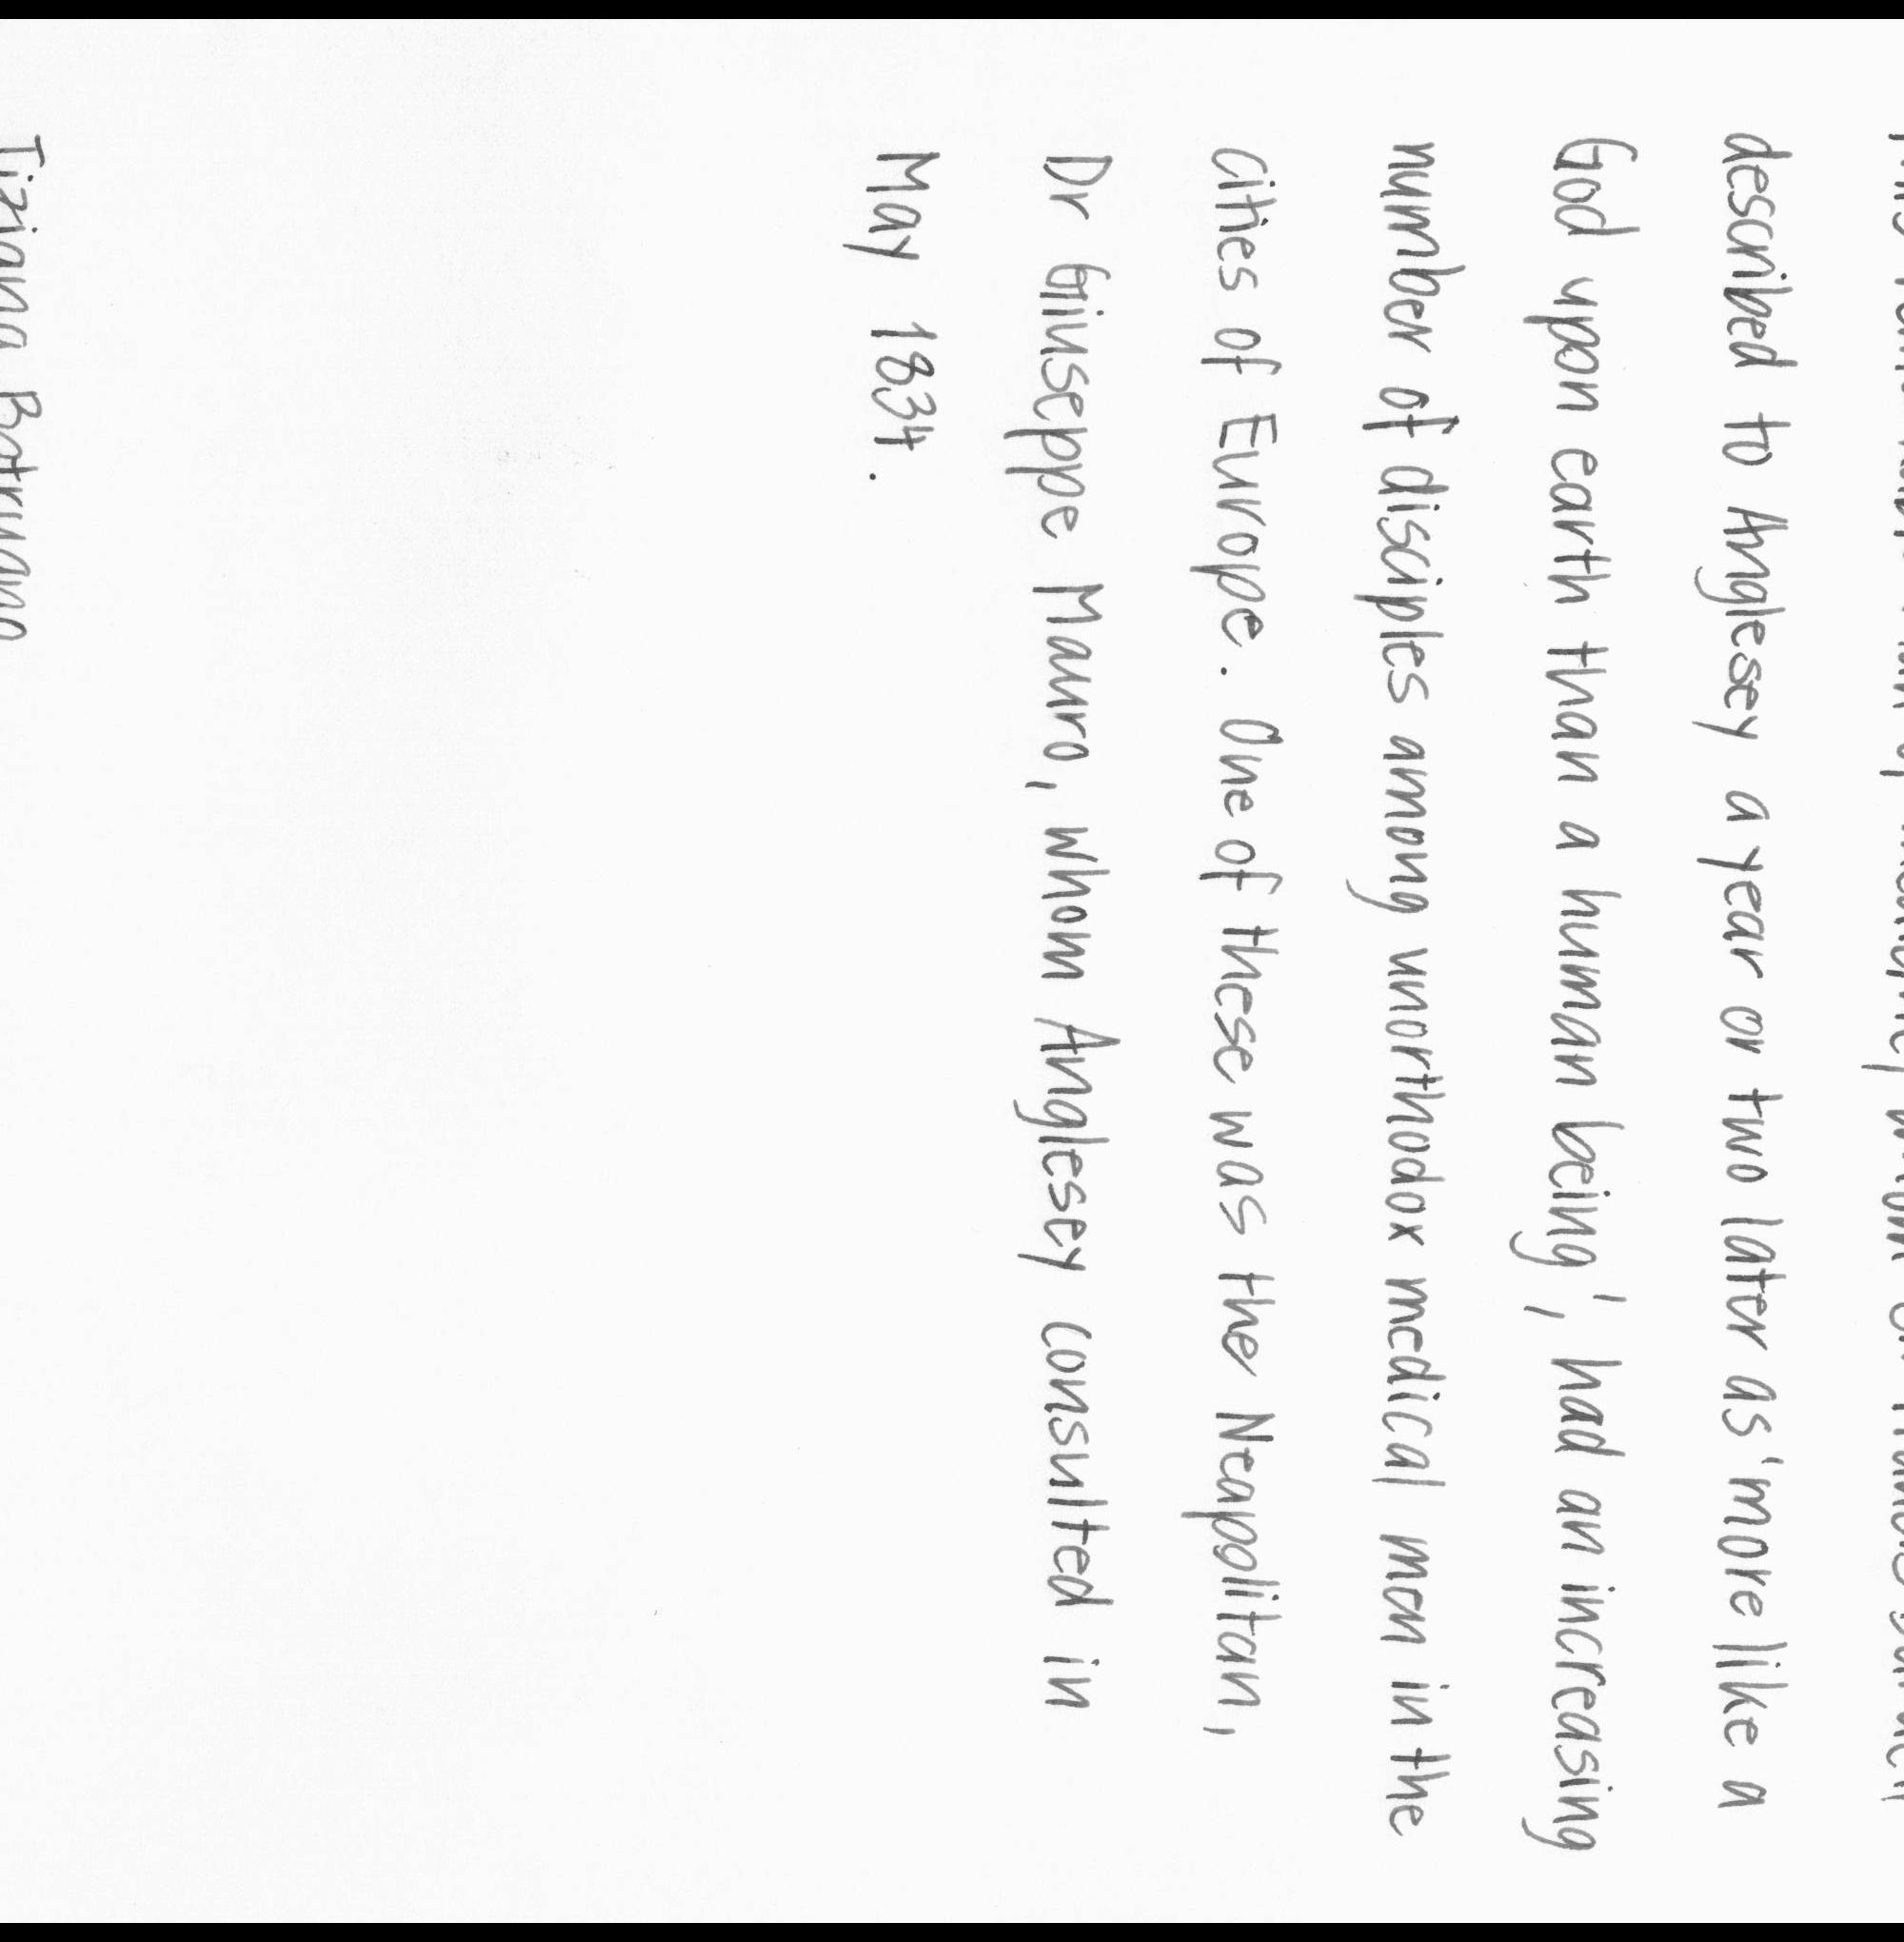 described to Anglesey a year or two later as 'more like a
God upon earth than a human being', had an increasing
number of disciples among unorthodox medical men in the
cities of Europe. One of these was the Neapolitan,
Dr Giuseppe Mauro, whom Anglesey consulted in
May 1834.
Tiziana